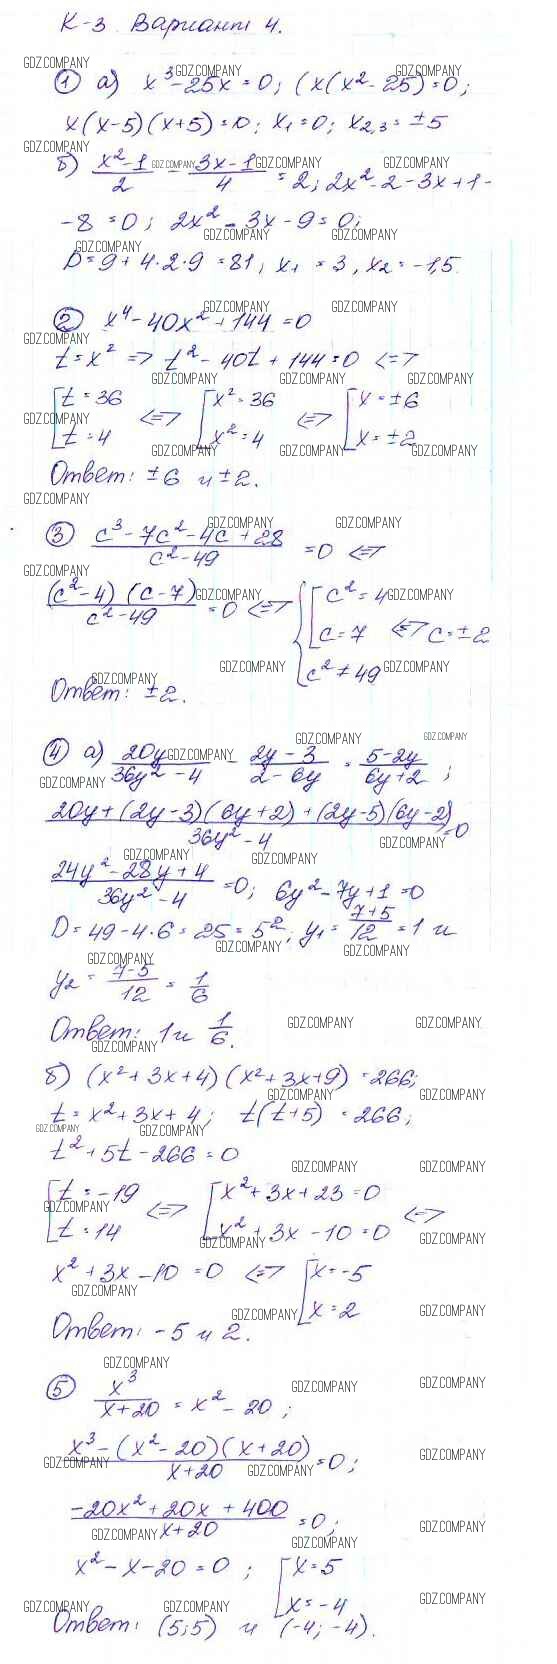 К-3 Вариант 4.
① а) x³-25x=0; (x(x²-25)=0;
x(x-5)(x+5)=0; x₁=0; x₂,₃=±5
б) (x²-1)/2 - (3x-1)/4 = 2; 2x²-2-3x+1-
-8=0; 2x²-3x-9=0;
D=9+4·2·9=81; x₁=3, x₂=-1,5
② x⁴-40x²+144=0
t=x² => t²-40t+144=0 <=>
[t=36; t=4 <=> [x²=36; x²=4 <=> [x=±6; x=±2
Ответ: ±6 и ±2.
③ (c³-7c²-4c+28)/(c²-49) =0 <=>
((c²-4)(c-7))/(c²-49) =0 <=> {[c²=4; c=7; c²≠49 <=> c=±2
Ответ: ±2.
④ а) 20y/(36y²-4) - (2y-3)/(2-6y) = (5-2y)/(6y+2);
(20y+(2y-3)(6y+2)+(2y-5)(6y-2))/(36y²-4) =0
(24y²-28y+4)/(36y²-4) =0; 6y²-7y+1=0
D=49-4·6=25=5²; y₁=(7+5)/12=1 и
y₂=(7-5)/12=1/6
Ответ: 1 и 1/6.
б) (x²+3x+4)(x²+3x+9)=266;
t=x²+3x+4; t(t+5)=266;
t²+5t-266=0
[t=-19; t=14 <=> [x²+3x+23=0; x²+3x-10=0 <=>
x²+3x-10=0 <=> [x=-5; x=2
Ответ: -5 и 2.
⑤ x³/(x+20) = x²-20;
(x³-(x²-20)(x+20))/(x+20) =0;
(-20x²+20x+400)/(x+20) =0;
x²-x-20=0; [x=5; x=-4
Ответ: (5;5) и (-4;-4).
GDZ.COMPANY